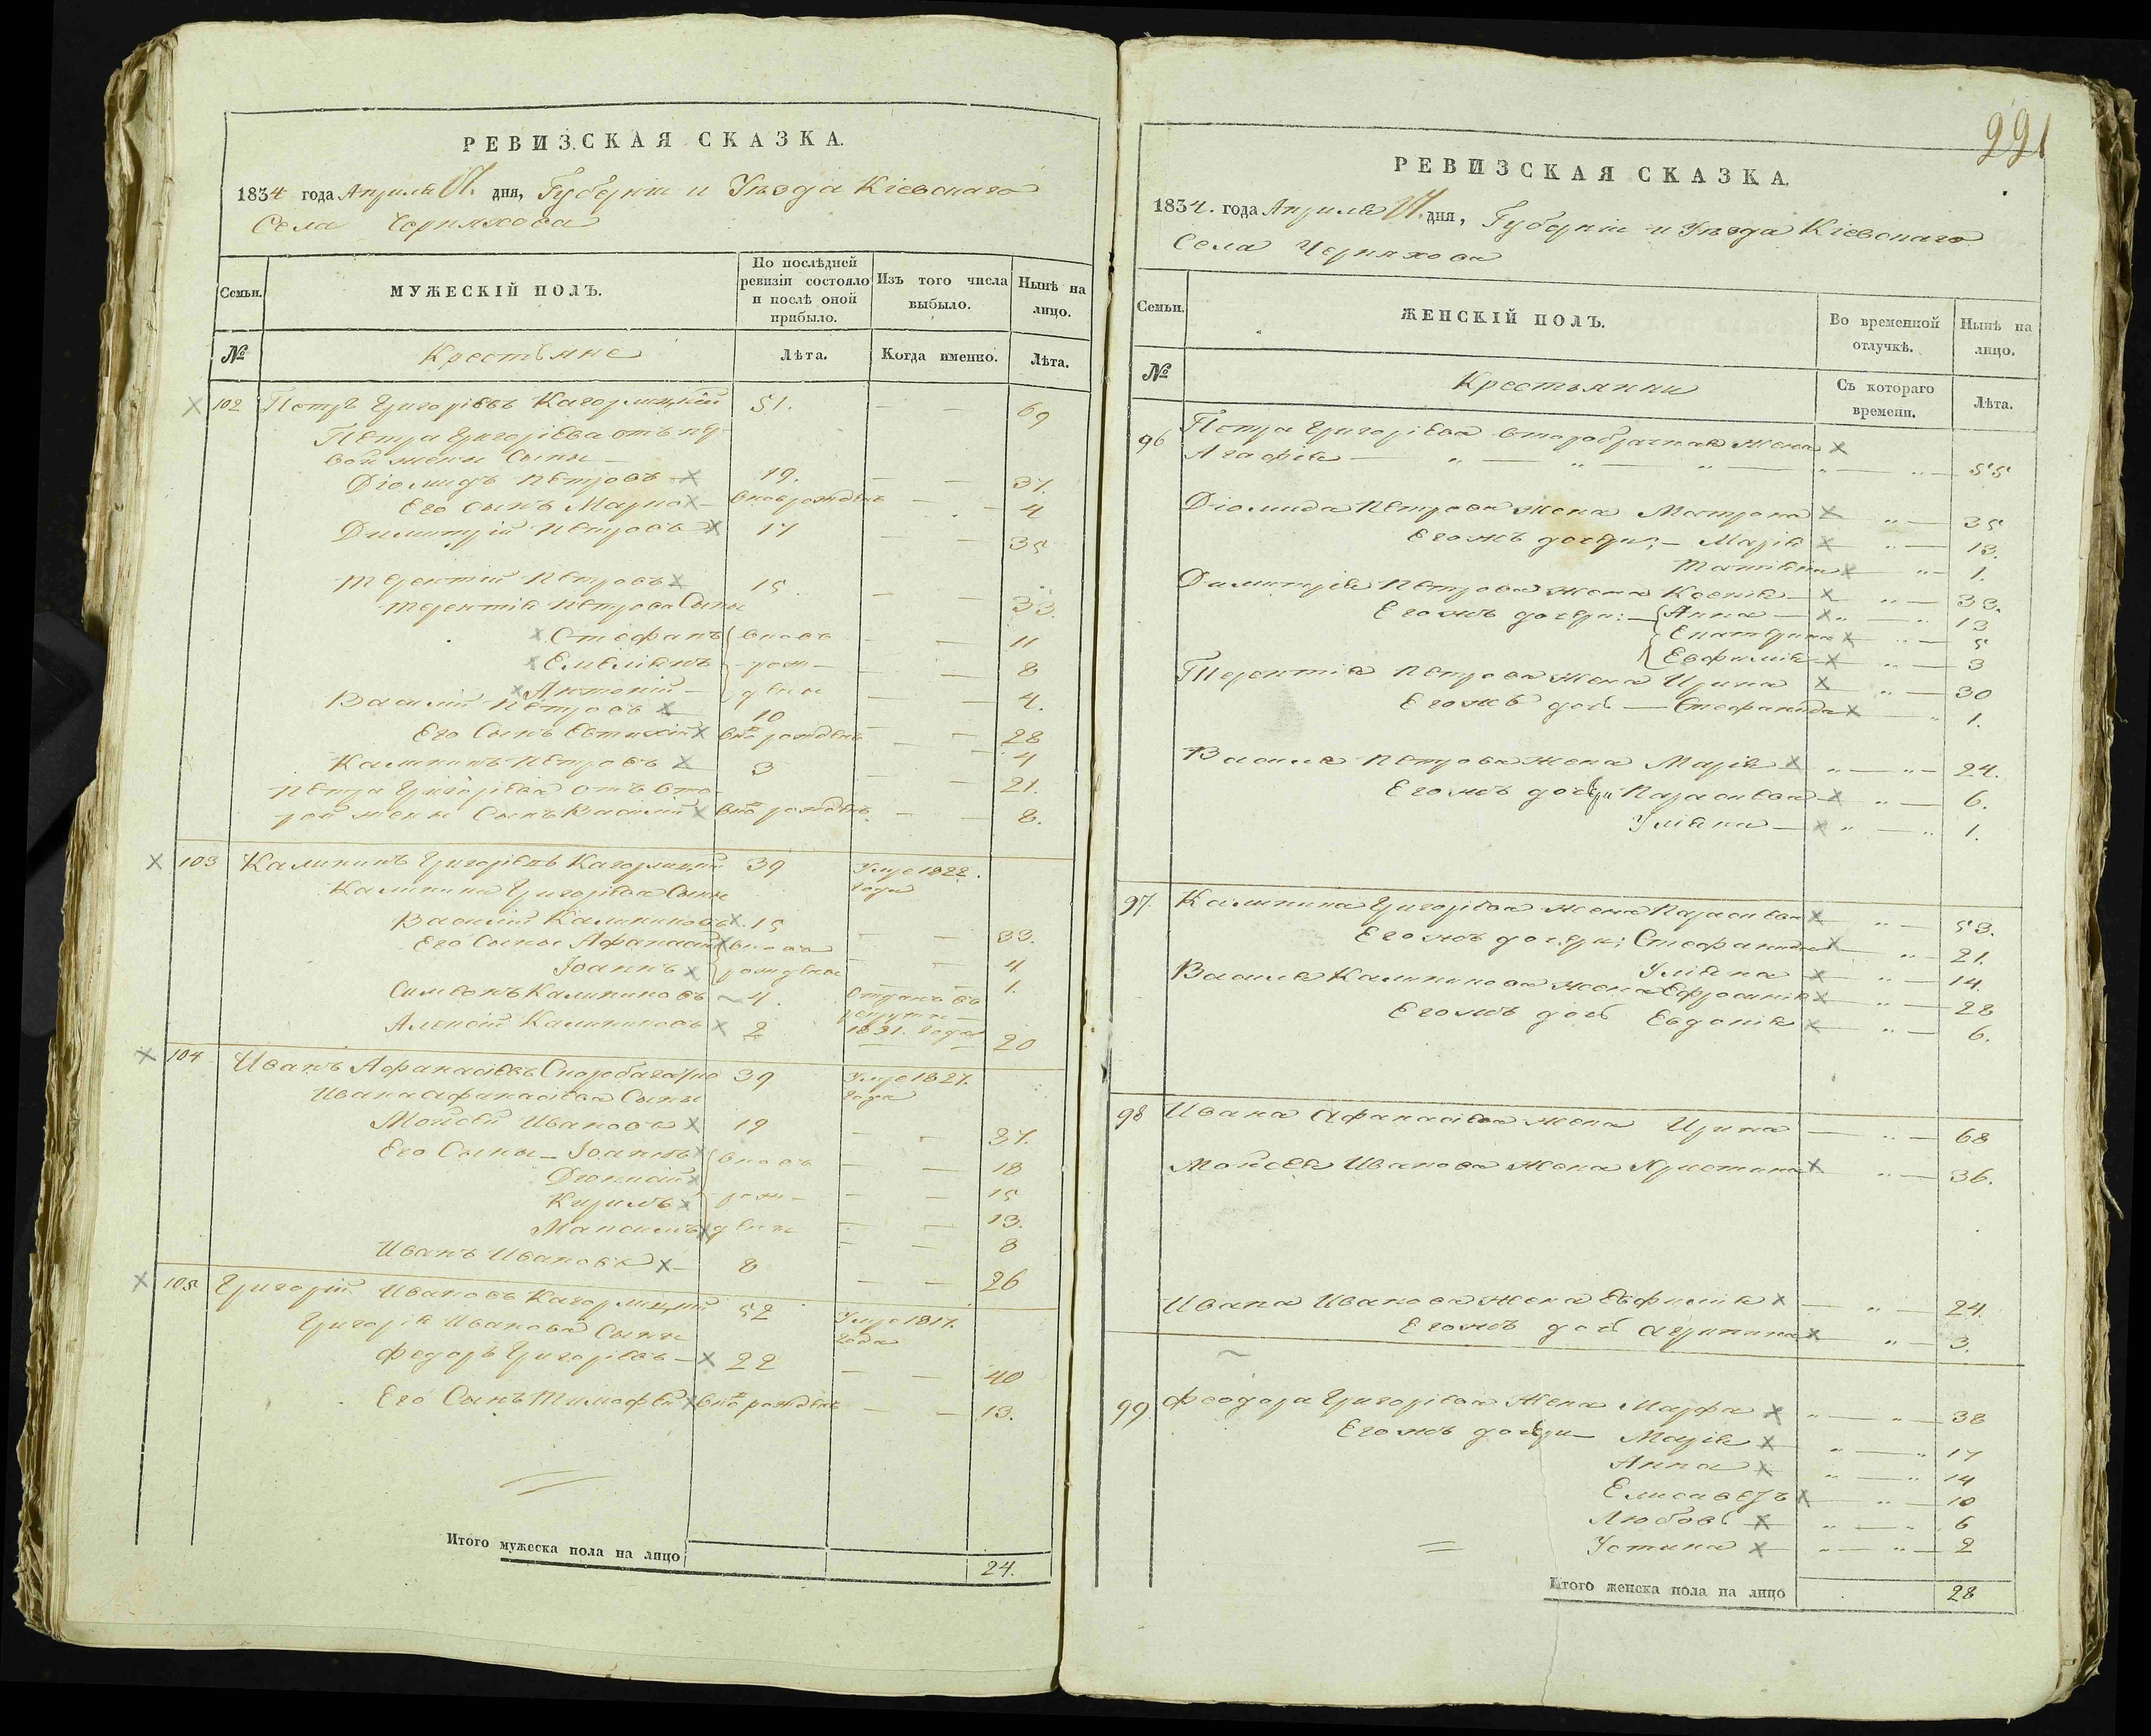 РЕВИЗСКАЯ СКАЗКА.
1834 года Апреля дня, Губерніи и Уѣзда Кіевскаго
Села Черняхова
Семьи. МУЖЕСКІЙ ПОЛЪ. По послѣдней ревизіи состояло и послѣ оной прибыло. Изъ того числа выбыло. Нынѣ на лицо.
№ Крестьяне Лѣта. Когда именно. Лѣта.
102 Петръ Григоріевъ Кагорлицкій 51. — — 69
Петра Григоріева отъ пер-
вой жены Сыны
Діомидъ Петровъ 19. — — 37.
Его сынъ Марко вновь рожденъ — — 4
Димитрій Петровъ 17 — — 35
Терентій Петровъ 15. — — 33.
Терентія Петрова Сыны
Стефанъ вновь — — 11
Емеліянъ рож- — — 8
Антоній дены — — 4.
Василій Петровъ 10 — — 28
Его Сынъ Евтихій вно рожденъ — — 4
Калиникъ Петровъ 3 — — 21.
Петра Григоріева отъ вто-
рой жены Сынъ Василій вно рожденъ — — 8.
103 Калиникъ Григоріевъ Кагорлицкій 39 Умре 1822. года
Калиника Григоріева Сыны
Василій Калиниковъ 15 — — 33.
Его Сыны Афанасій вновь — — 4
Іоаннъ рождены — — 1.
Симеонъ Калиниковъ 4. Отданъ въ рекруты 1831. года
Алексій Калиниковъ 2 — — 20
104 Иванъ Афанасіевъ Скоробагатко 39 Умре 1827. года
Ивана Афанасіева Сыны
Мойсей Ивановъ 19 — — 37.
Его Сыны — Іоаннъ вновь — — 18
— — 15
Кирилъ рож- — — 13.
Максимъ дены — — 8
Иванъ Ивановъ 8 — — 26
105 Григорій Ивановъ Кагорлицкій 52 Умре 1817. года
Григорія Иванова Сынъ
Федоръ Григоріевъ — 22 — — 40
Его Сынъ Тимофей вно рожденъ — — 13.
Итого мужеска пола на лицо 24.
991
РЕВИЗСКАЯ СКАЗКА.
1834. года Апреля дня, Губерніи и Уѣзда Кіевскаго
Села Черняхова
Семьи. ЖЕНСКІЙ ПОЛЪ. Во временной отлучкѣ. Нынѣ на лицо.
№ Крестьянки Съ котораго времени. Лѣта.
96 Петра Григоріева второбрачная жена
Агафія — " — " — " — " — " — 55
Діомида Петрова жена Матрона " — 35
Его жъ дочери: — Марія — " — 13.
Татіана — " — 1.
Димитрія Петрова жена Ксенія — " — 33.
Его жъ дочери: — Анна — " — 13
Екатерина — " — 5
Евфимія — " — 3
Терентія Петрова жена Ирина — " — 30
Его жъ дочь — Стефанида — " 1.
Василія Петрова жена Марія " — " — 24.
Его жъ дочери Параскева — " — 6.
Уліяна — " — " 1.
97. Калиника Григоріева жена Параскева — " — 53.
Его жъ дочери: Стефанида — " — 21.
Уліяна — " — 14.
Василія Калиникова жена Ефросинія — " — 28
Его жъ дочь Евдокія — " — 6.
98 Ивана Афанасіева жена Ирина — " — 68
Мойсея Иванова жена Христина — " — 36.
Ивана Иванова жена Евфимія — " — 24.
Его жъ дочь Агрипина — " — 3.
99. Феодора Григоріева Жена Марфа " — " — 38
Его жъ дочери — Марія " — " 17
Анна " — " 14
Елисаветъ — " — 10
Любовь " — " 6
Устина " — " — 2
Итого женска пола на лицо 28